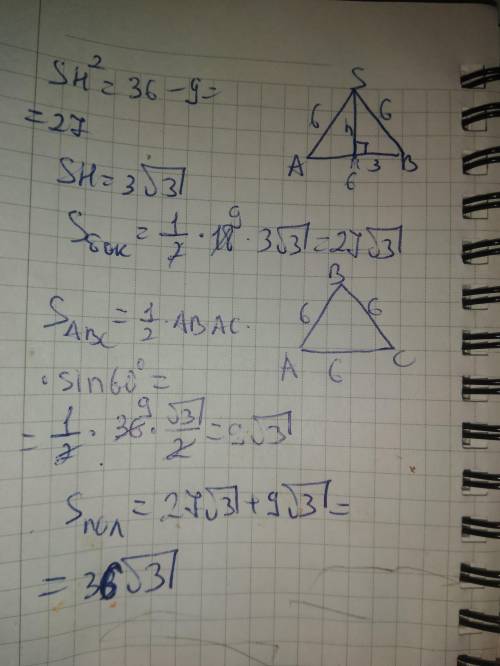 SH² = 36 - 9 =
= 27
SH = 3√3
S
6
6
h
A
H
3
B
6
Sбок = 1/2 · 18 9 · 3√3 = 27√3
B
6
6
A
6
C
S ABC = 1/2 · AB AC ·
· sin60° =
= 1/2 · 36 9 · √3/2 = 9√3
Sпол = 27√3 + 9√3 =
= 36√3